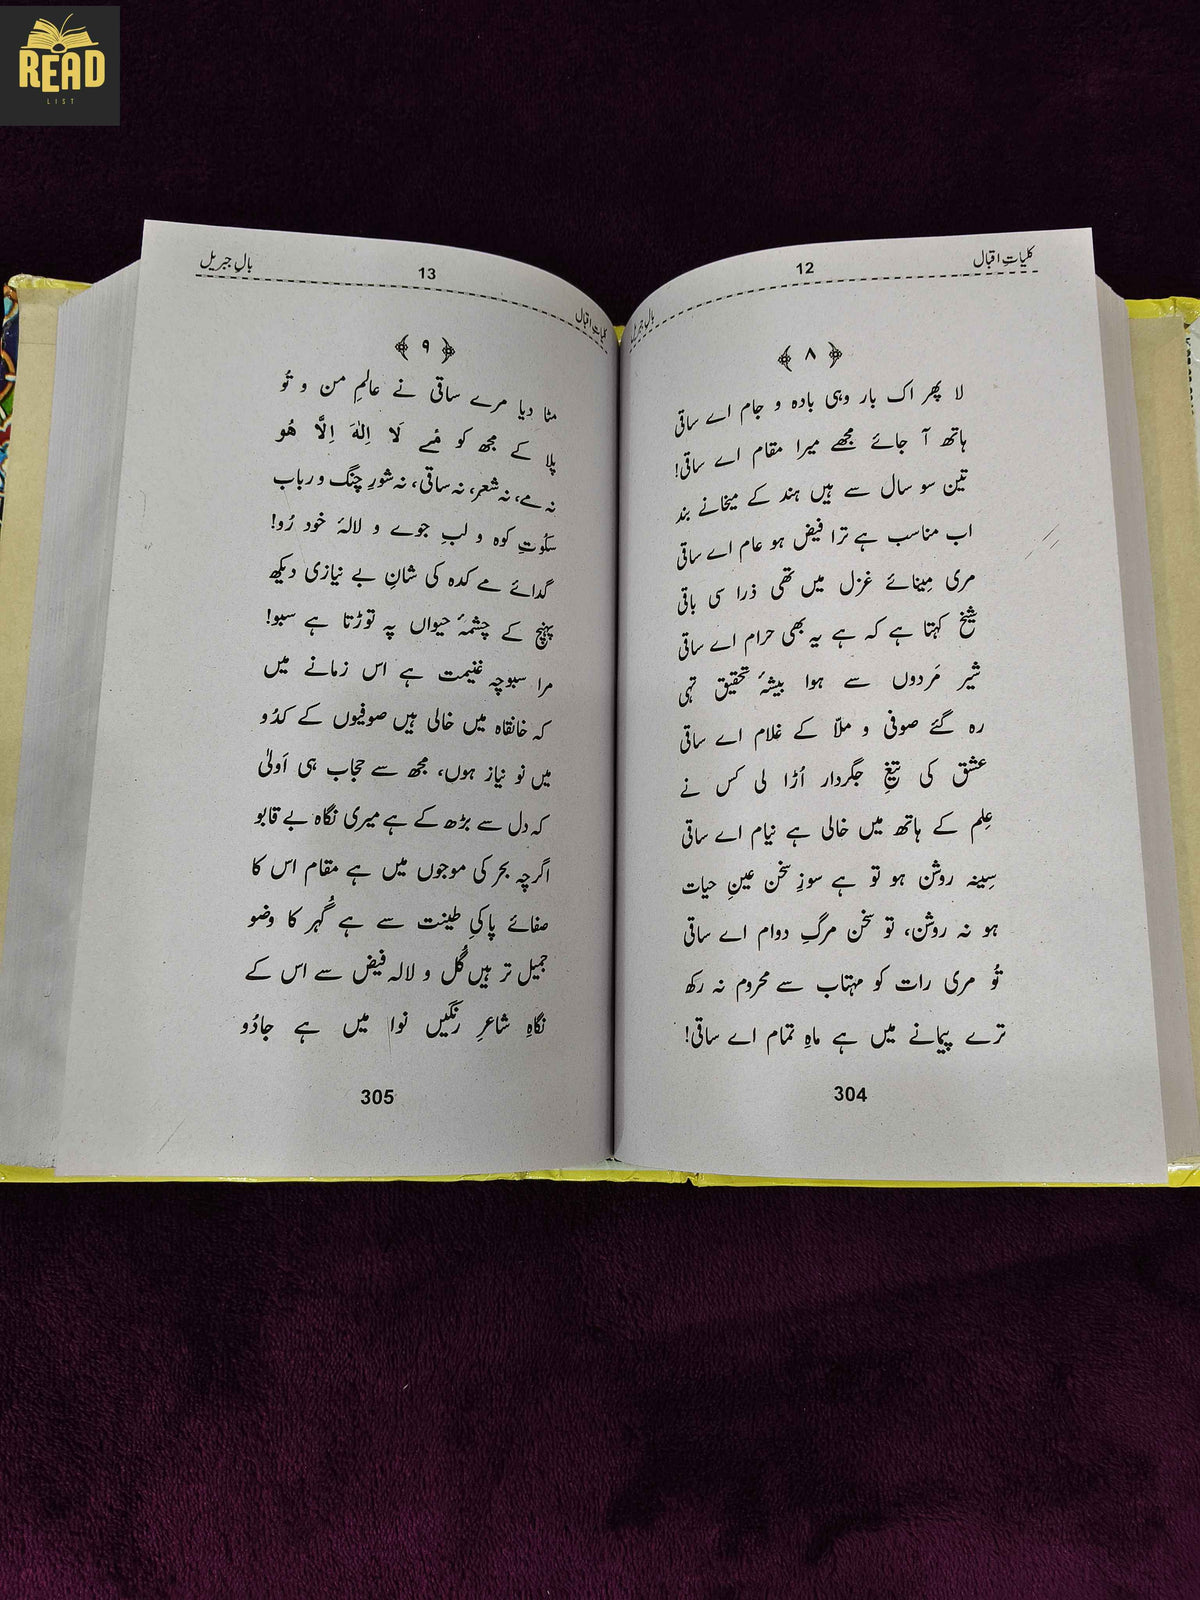 READ
LIST
کلیاتِ اقبال
12
بالِ جبریل
۸
لا پھر اک بار وہی بادہ و جام اے ساقی
ہاتھ آ جائے مجھے میرا مقام اے ساقی!
تین سو سال سے ہیں ہند کے میخانے بند
اب مناسب ہے ترا فیض ہو عام اے ساقی
مری مِینائے غزل میں تھی ذرا سی باقی
شیخ کہتا ہے کہ ہے یہ بھی حرام اے ساقی
شیر مَردوں سے ہوا بیشۂ تحقیق تہی
رہ گئے صوفی و ملّا کے غلام اے ساقی
عشق کی تیغِ جگردار اُڑا لی کس نے
عِلم کے ہاتھ میں خالی ہے نیام اے ساقی
سِینہ روشن ہو تو ہے سوزِ سخن عینِ حیات
ہو نہ روشن، تو سخن مرگِ دوام اے ساقی
تُو مری رات کو مہتاب سے محروم نہ رکھ
ترے پیمانے میں ہے ماہِ تمام اے ساقی!
304
کلیاتِ اقبال
13
بالِ جبریل
۹
مٹا دیا مرے ساقی نے عالمِ من و تُو
پلا کے مجھ کو مَے لَا اِلٰہَ اِلَّا ھُو
نہ مے، نہ شعر، نہ ساقی، نہ شورِ چنگ و رباب
سکُوتِ کوہ و لبِ جوے و لالۂ خود رُو!
گدائے مے کدہ کی شانِ بے نیازی دیکھ
پہنچ کے چشمۂ حیواں پہ توڑتا ہے سبو!
مرا سبوچہ غنیمت ہے اس زمانے میں
کہ خانقاہ میں خالی ہیں صوفیوں کے کدُو
میں نو نیاز ہوں، مجھ سے حجاب ہی اَولیٰ
کہ دل سے بڑھ کے ہے میری نگاہ بے قابو
اگرچہ بحر کی موجوں میں ہے مقام اس کا
صفائے پاکیِ طینت سے ہے گُہر کا وضو
جمیل تر ہیں گُل و لالہ فیض سے اس کے
نگاہِ شاعرِ رنگیں نوا میں ہے جادُو
305